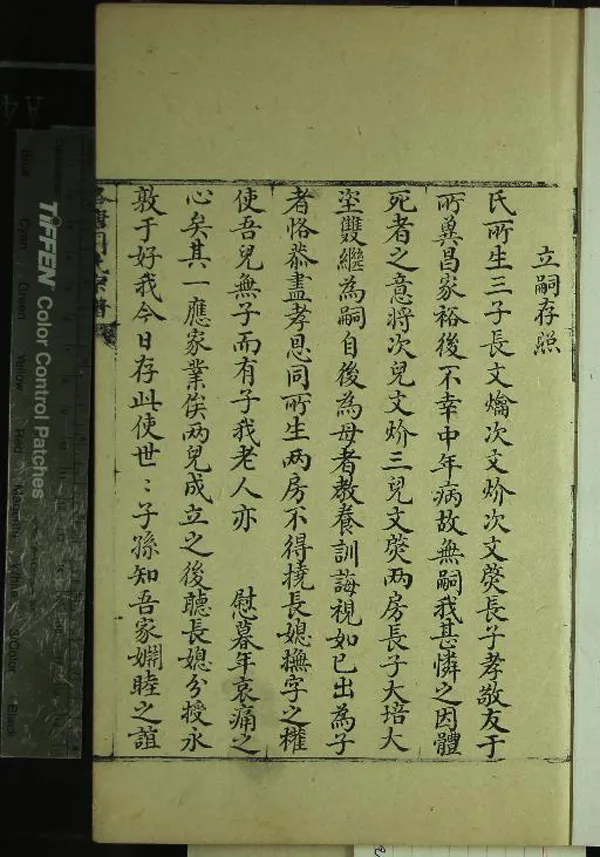 立嗣存照
氏所生三子長文爚次文炌次文熒長子孝敬友于
所冀昌家裕後不幸中年病故無嗣我甚憐之因體
死者之意將次兒文炌三兒文熒两房長子大培大
坖雙繼為嗣自後為母者教養訓誨視如已出為子
者恪恭盡孝恩同所生两房不得撓長媳撫字之權
使吾兒無子而有子我老人亦 慰暮年哀痛之
心矣其一應家業俟两兒成立之後聽長媳分授永
敦于好我今日存此使世〻子孫知吾家婣睦之誼
TIFFEN Color Control Patches
Blue
Cyan
Green
Yellow
Red
Magenta
White
3/Color
Black